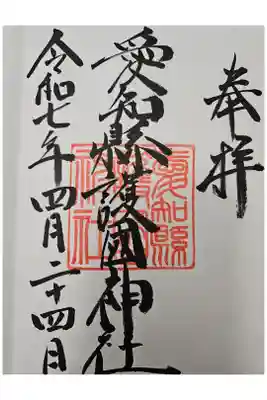 奉拝
愛知縣護國神社
愛知縣護國神社
令和七年四月二十四日